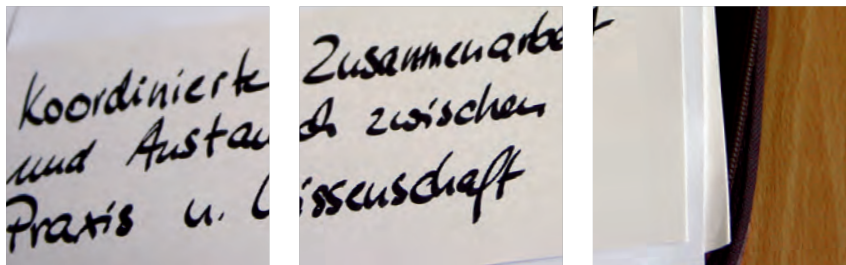 Koordinierte Zusammenarbeit
und Austausch zwischen
Praxis u. Wissenschaft